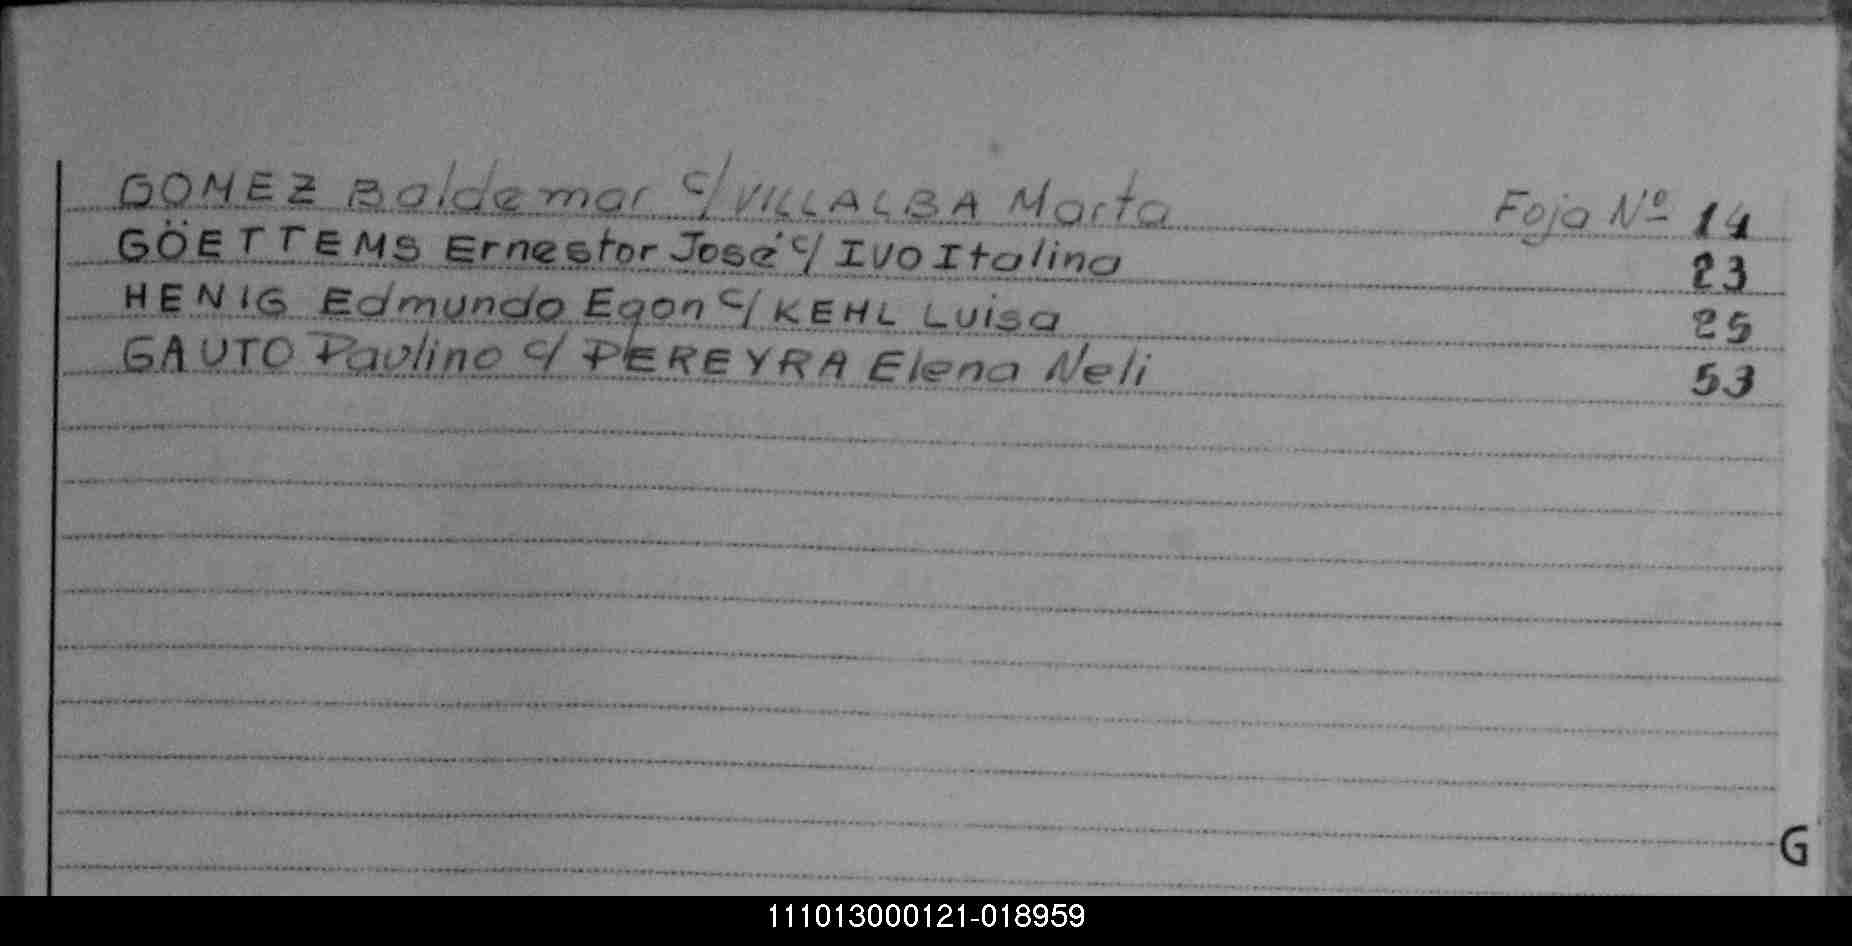 GOMEZ Baldemar c/ VILLALBA Marta Foja Nº 14
GÖETTEMS Ernestor José c/ IVO Italina 23
HENIG Edmundo Egon c/ KEHL Luisa 25
GAUTO Paulino c/ PEREYRA Elena Neli 53
G
111013000121-018959